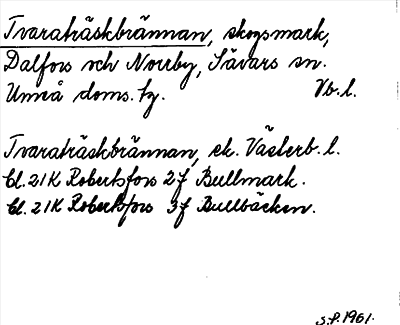 Tvaraträskbrännan, skogsmark,
Dalfors och Norrby, Sävars sn.
Umeå doms. tg. Vb. l.
Tvaraträskbrännan, ek. Västerb. l.
bl. 21K Robertsfors 2f Bullmark.
bl. 21K Robertsfors 3f Bullbäcken.
S.P. 1961.